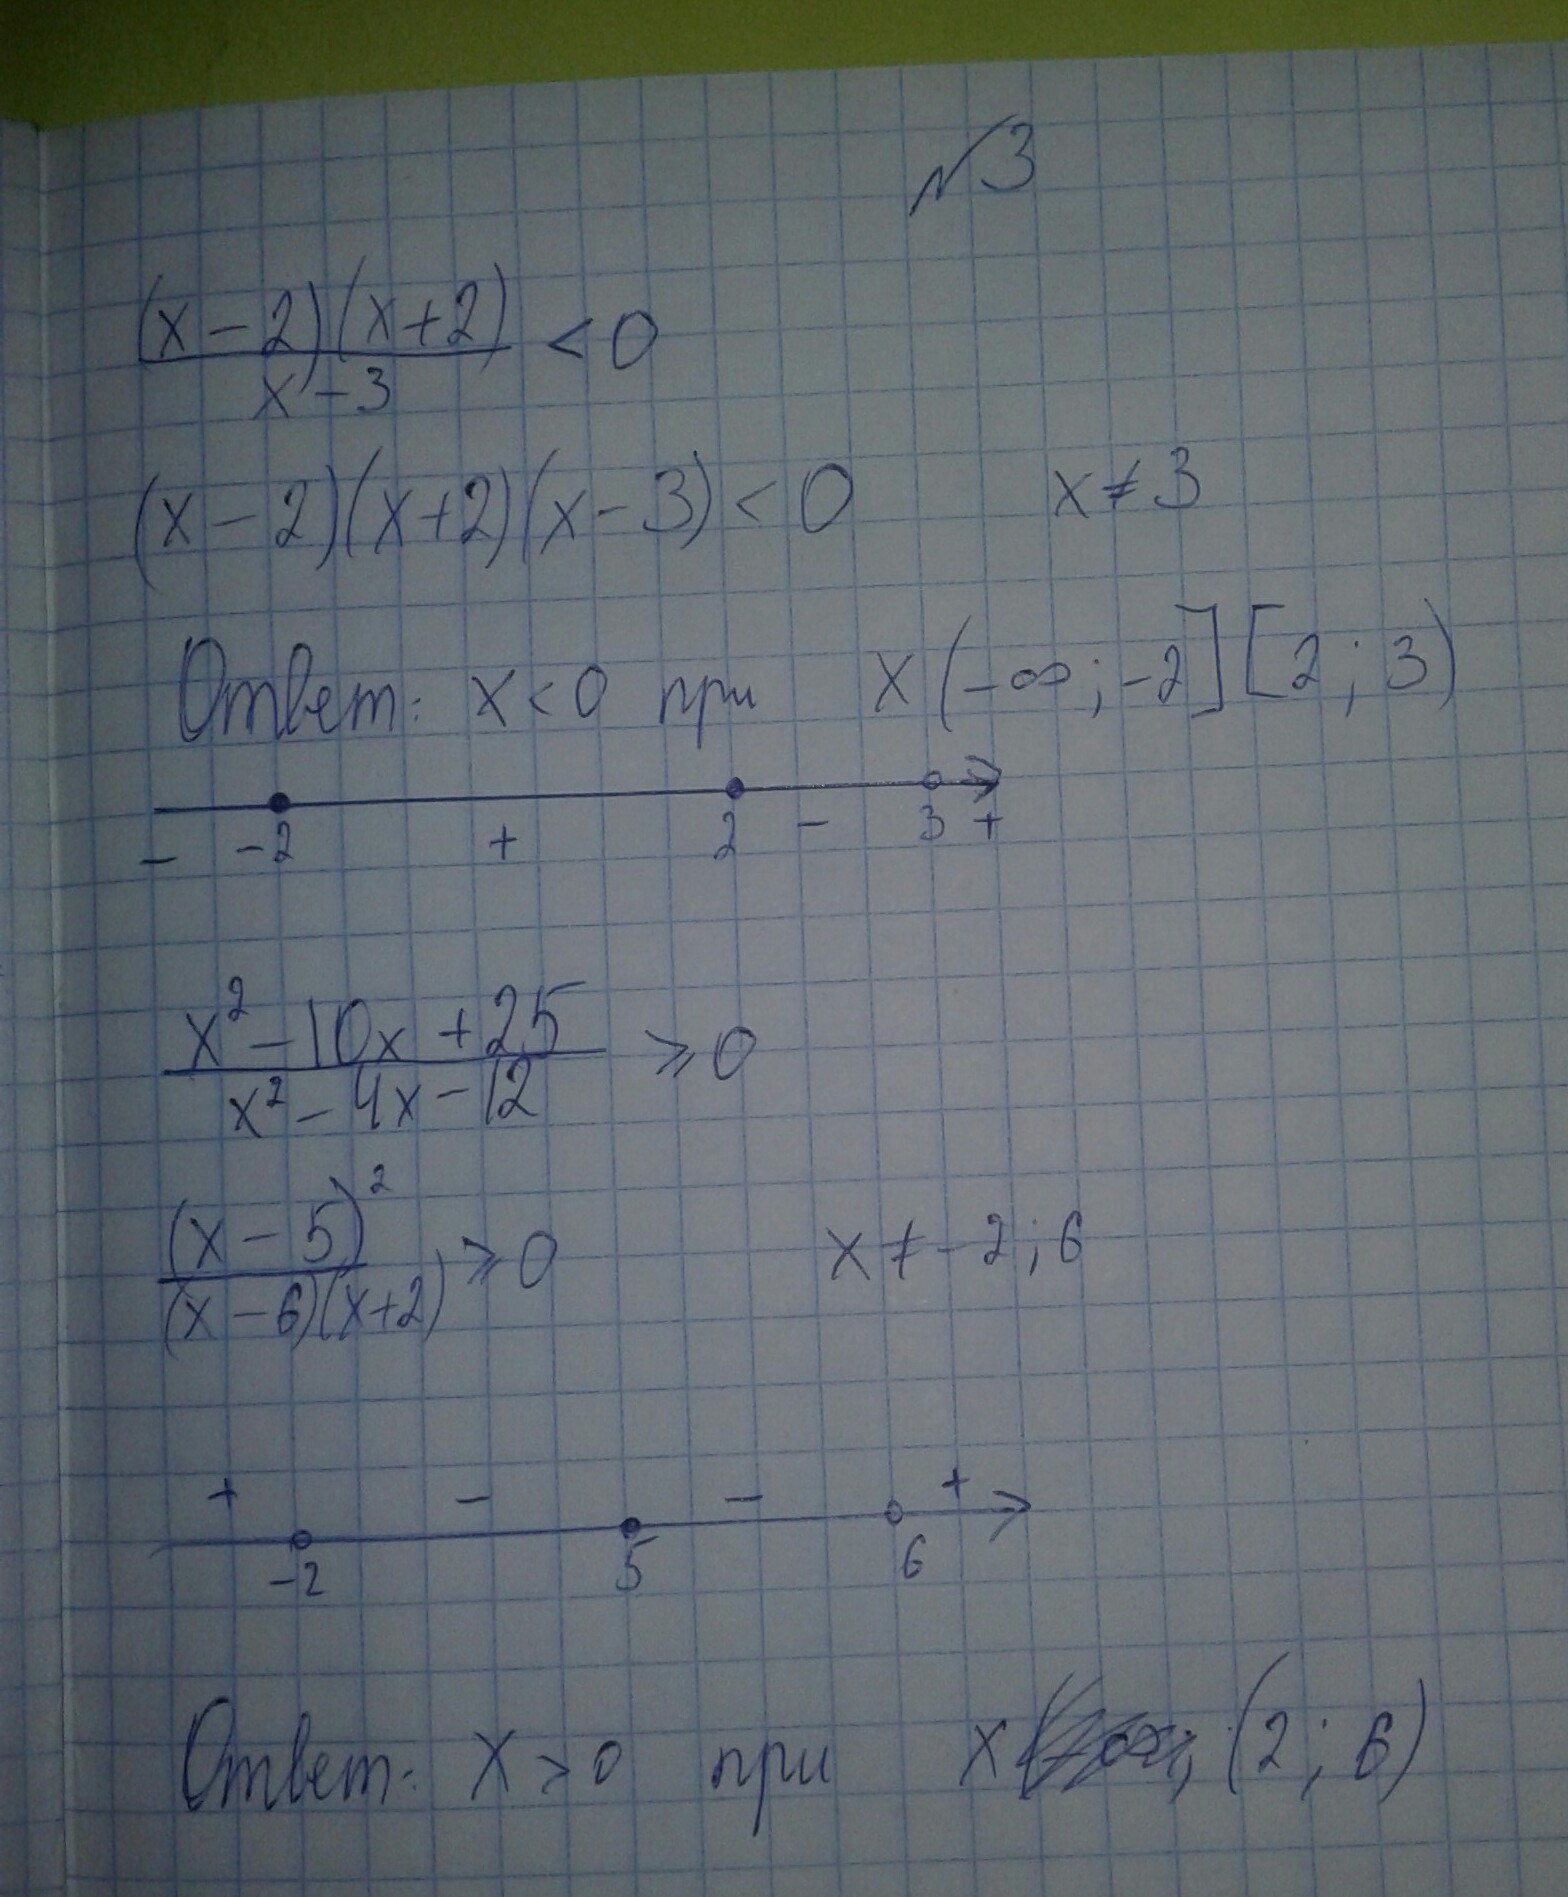 №3
(x-2)(x+2)/x-3 < 0
(x-2)(x+2)(x-3) < 0 x ≠ 3
Ответ: x < 0 при x (-∞; -2] [2; 3)
- -2 + 2 - 3 +
x²-10x+25/x²-4x-12 ⩾ 0
(x-5)²/(x-6)(x+2) ⩾ 0 x ≠ -2; 6
+ - - +
-2 5 6
Ответ: x > 0 при x (2; 6)